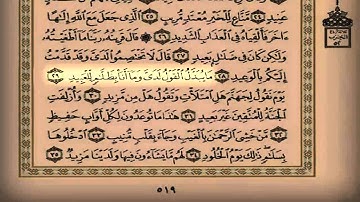 عَنِيدٍ ٢٤ مَّنَّاعٍ لِّلْخَيْرِ مُعْتَدٍ مُّرِيبٍ ٢٥ ٱلَّذِى جَعَلَ مَعَ ٱللَّهِ إِلَٰهًا
ءَاخَرَ فَأَلْقِيَاهُ فِى ٱلْعَذَابِ ٱلشَّدِيدِ ٢٦ ۞ قَالَ قَرِينُهُۥ رَبَّنَا مَآ أَطْغَيْتُهُۥ
وَلَٰكِن كَانَ فِى ضَلَٰلٍۭ بَعِيدٍ ٢٧ قَالَ لَا تَخْتَصِمُوا۟ لَدَىَّ وَقَدْ قَدَّمْتُ
إِلَيْكُم بِٱلْوَعِيدِ ٢٨ مَا يُبَدَّلُ ٱلْقَوْلُ لَدَىَّ وَمَآ أَنَا۠ بِظَلَّٰمٍ لِّلْعَبِيدِ ٢٩
يَوْمَ نَقُولُ لِجَهَنَّمَ هَلِ ٱمْتَلَأْتِ وَتَقُولُ هَلْ مِن مَّزِيدٍ ٣٠ وَأُزْلِفَتِ
ٱلْجَنَّةُ لِلْمُتَّقِينَ غَيْرَ بَعِيدٍ ٣١ هَٰذَا مَا تُوعَدُونَ لِكُلِّ أَوَّابٍ حَفِيظٍ
٣٢ مَّنْ خَشِىَ ٱلرَّحْمَٰنَ بِٱلْغَيْبِ وَجَآءَ بِقَلْبٍ مُّنِيبٍ ٣٣ ٱدْخُلُوهَا
بِسَلَٰمٍ ۖ ذَٰلِكَ يَوْمُ ٱلْخُلُودِ ٣٤ لَهُم مَّا يَشَآءُونَ فِيهَا وَلَدَيْنَا مَزِيدٌ ٣٥
٥١٩